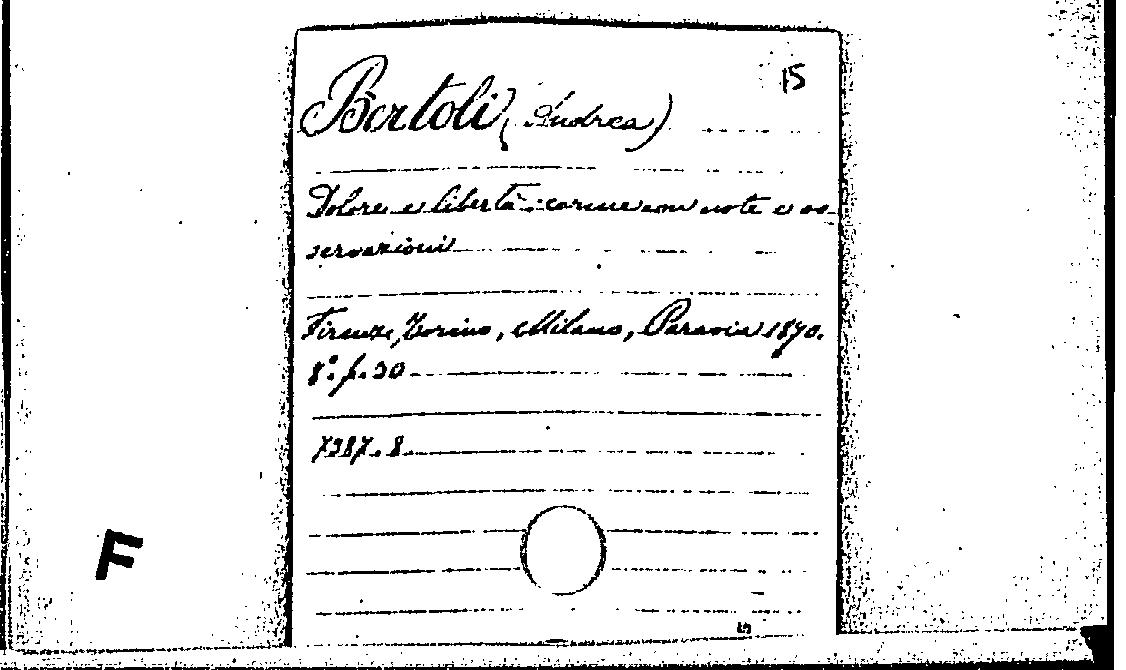 15
Bertoli (Andrea)
Dolore e libertà: carme con note e os-
servazioni
Firenze, Torino, Milano, Paravia 1870.
8°. p. 30
7387.8
F